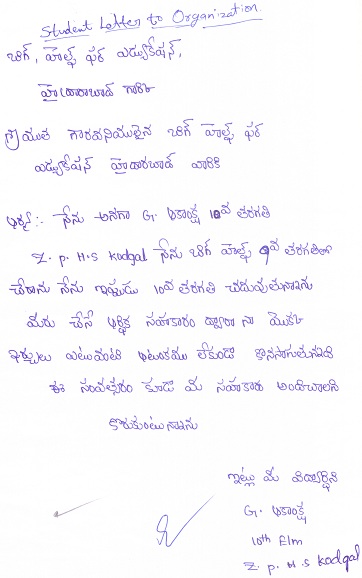 Student Letter to Organization
బిగ్, హెల్ప్ ఫర్ ఎడ్యుకేషన్,
హైదారాబాద్ గారికి
శ్రీయుత గౌరవనీయులైన బిగ్ హెల్ప్ ఫర్
ఎడ్యుకేషన్ హైదారాబాద్ వారికి
ఆర్య:- నేను అనగా G. ఆకాంక్ష 10వ తరగతి
Z. P. H.S Kodgal నేను బిగ్ హెల్ప్ 9వ తరగతిలో
చేరాను నేను ఇప్పుడు 10వ తరగతి చదువుతున్నాను
మీరు చేసే ఆర్థిక సహకారం ద్వారా నా యొక్క
ఖర్చులు ఎటువంటి ఆటంకము లేకుండా కొనసాగుతున్నది
ఈ సంవత్సరం కూడా మీ సహకారం అందించాలని
కోరుకుంటున్నాను
ఇట్లు మీ విద్యార్థిని
G. ఆకాంక్ష
10th E/m
Z. P. H S Kodgal